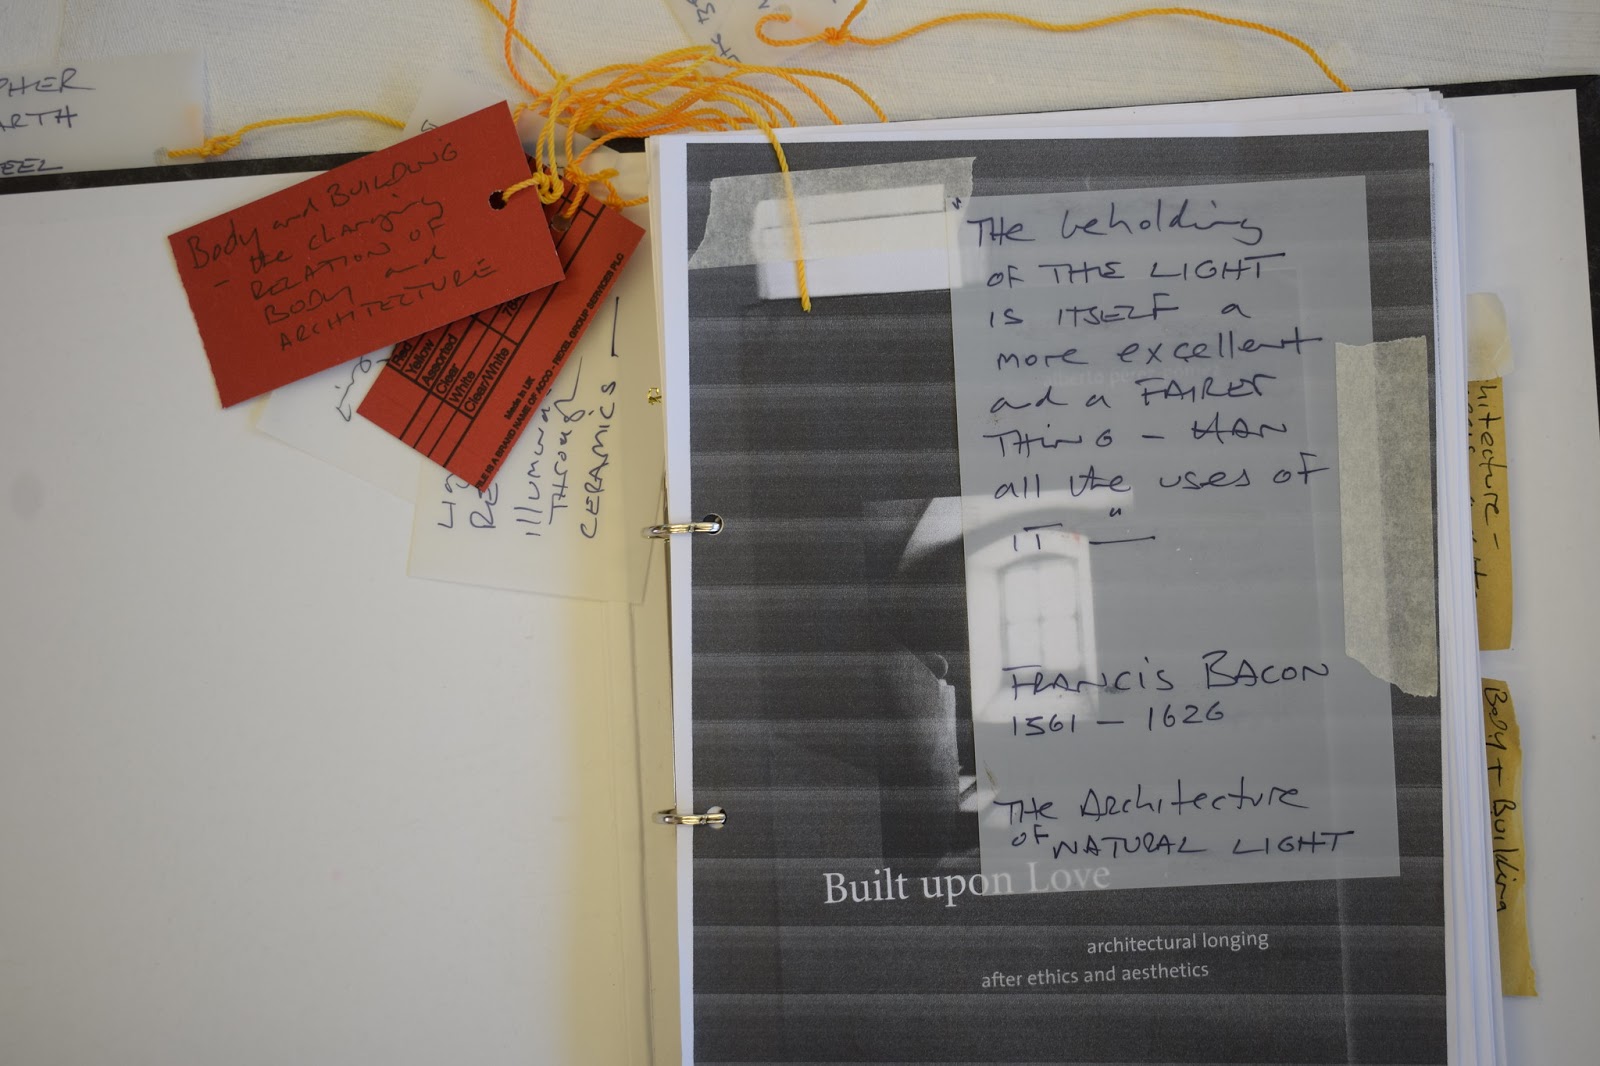 PHER
ARTH
EEL
Body and BUILDING
– the changing
RELATION OF
BODY and
ARCHITECTURE
Red
Yellow
Assorted
Clear
White
Clear/White
Made in UK
IS A BRAND NAME OF ACCO - REXEL GROUP SERVICES PLC
THROUGH
CERAMICS
"THE beholding
OF THE LIGHT
IS ITSELF a
more excellent
and a FAIRER
THING – THAN
all the uses of
IT"
FRANCIS BACON
1561 – 1626
THE ARCHITECTURE
OF NATURAL LIGHT
Built upon Love
architectural longing
after ethics and aesthetics
hitecture –
Body + Building